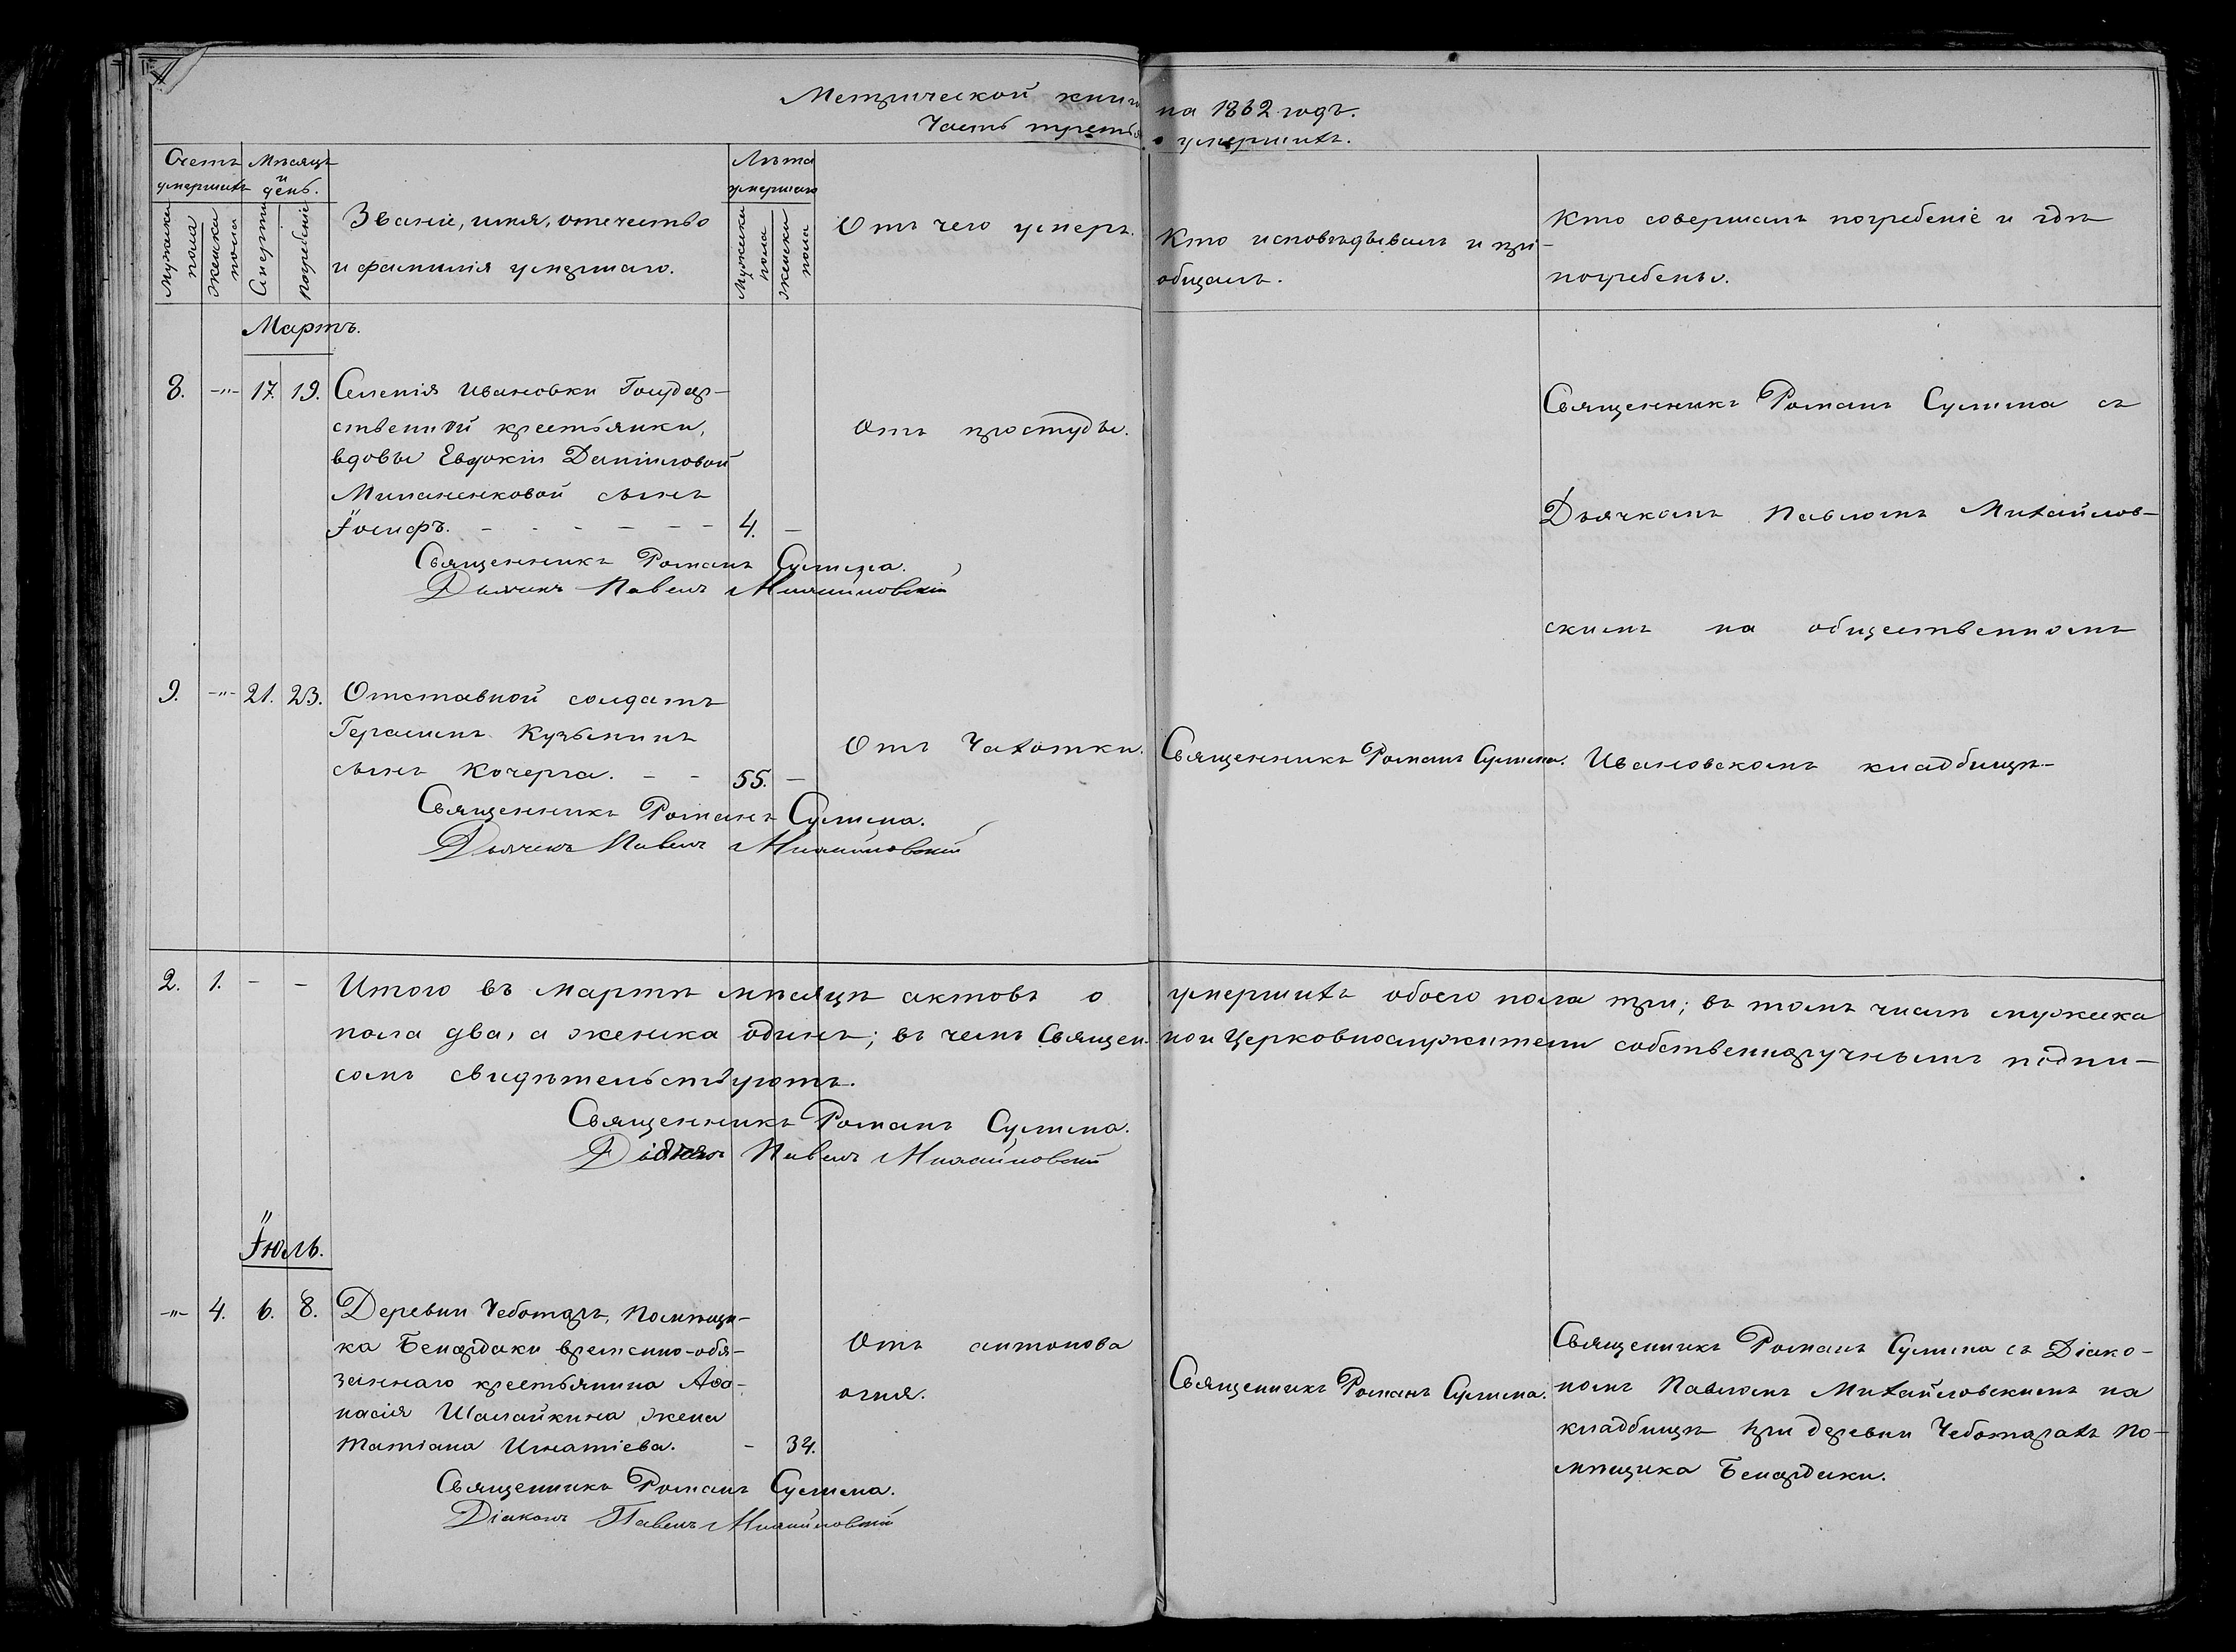 Метрической книги на 1862 годъ.
Часть третья о умершихъ.
Счетъ умершихъ
Мѣсяцъ и день.
Званіе, имя, отечество
и фамилія умершаго.
Лѣта умершаго
Отъ чего умеръ.
Кто исповѣдывалъ и прі-
общалъ.
Кто совершалъ погребеніе и гдѣ
погребены.
Мужеска пола
Женска пола
Смерти
Погребенія
Мужеска пола
Женска пола
Мартъ.
8. -"- 17. 19. Селенія Ивановки Государ-
ственной крестьянки,
вдовы Евдокіи Даниловой
сынъ
Іосифъ. - - - - - - 4. -
Отъ простуды.
Священникъ Романъ Сулима.
Дьячекъ Павелъ Михайловскій
Священникъ Романъ Сулима съ
Дьячкомъ Павломъ Михайлов-
скимъ на общественномъ
Ивановскомъ кладбищѣ
9. -"- 21. 23. Отставной солдатъ
Герасимъ Кузьминъ
сынъ Кочерга. - - 55. -
Отъ Чахотки.
Священникъ Романъ Сулима.
Священникъ Романъ Сулима.
Дьячекъ Павелъ Михайловскій
2. 1. - - Итого въ мартѣ мѣсяцѣ актовъ о умершихъ обоего пола три; въ томъ числѣ мужска
пола два, а женска одинъ; въ чемъ Священно и Церковнослужители собственноручнымъ подпи-
сомъ свидѣтельствуютъ.
Священникъ Романъ Сулима.
Павелъ Михайловскій
Іюль.
-"- 4. 6. 8. Деревни Чеботаръ, Помѣщи-
ка Бенардаки временно-обя-
заннаго крестьянина Аѳа-
насія Шалайкина жена
Татіана Игнатіева. - 34.
Отъ антонова
огня.
Священникъ Романъ Сулима.
Священникъ Романъ Сулима съ Діако-
номъ Павломъ Михайловскимъ на
кладбищѣ при деревни Чеботарахъ По-
мѣщика Бенардаки.
Священникъ Романъ Сулима.
Діаконъ Павелъ Михайловскій